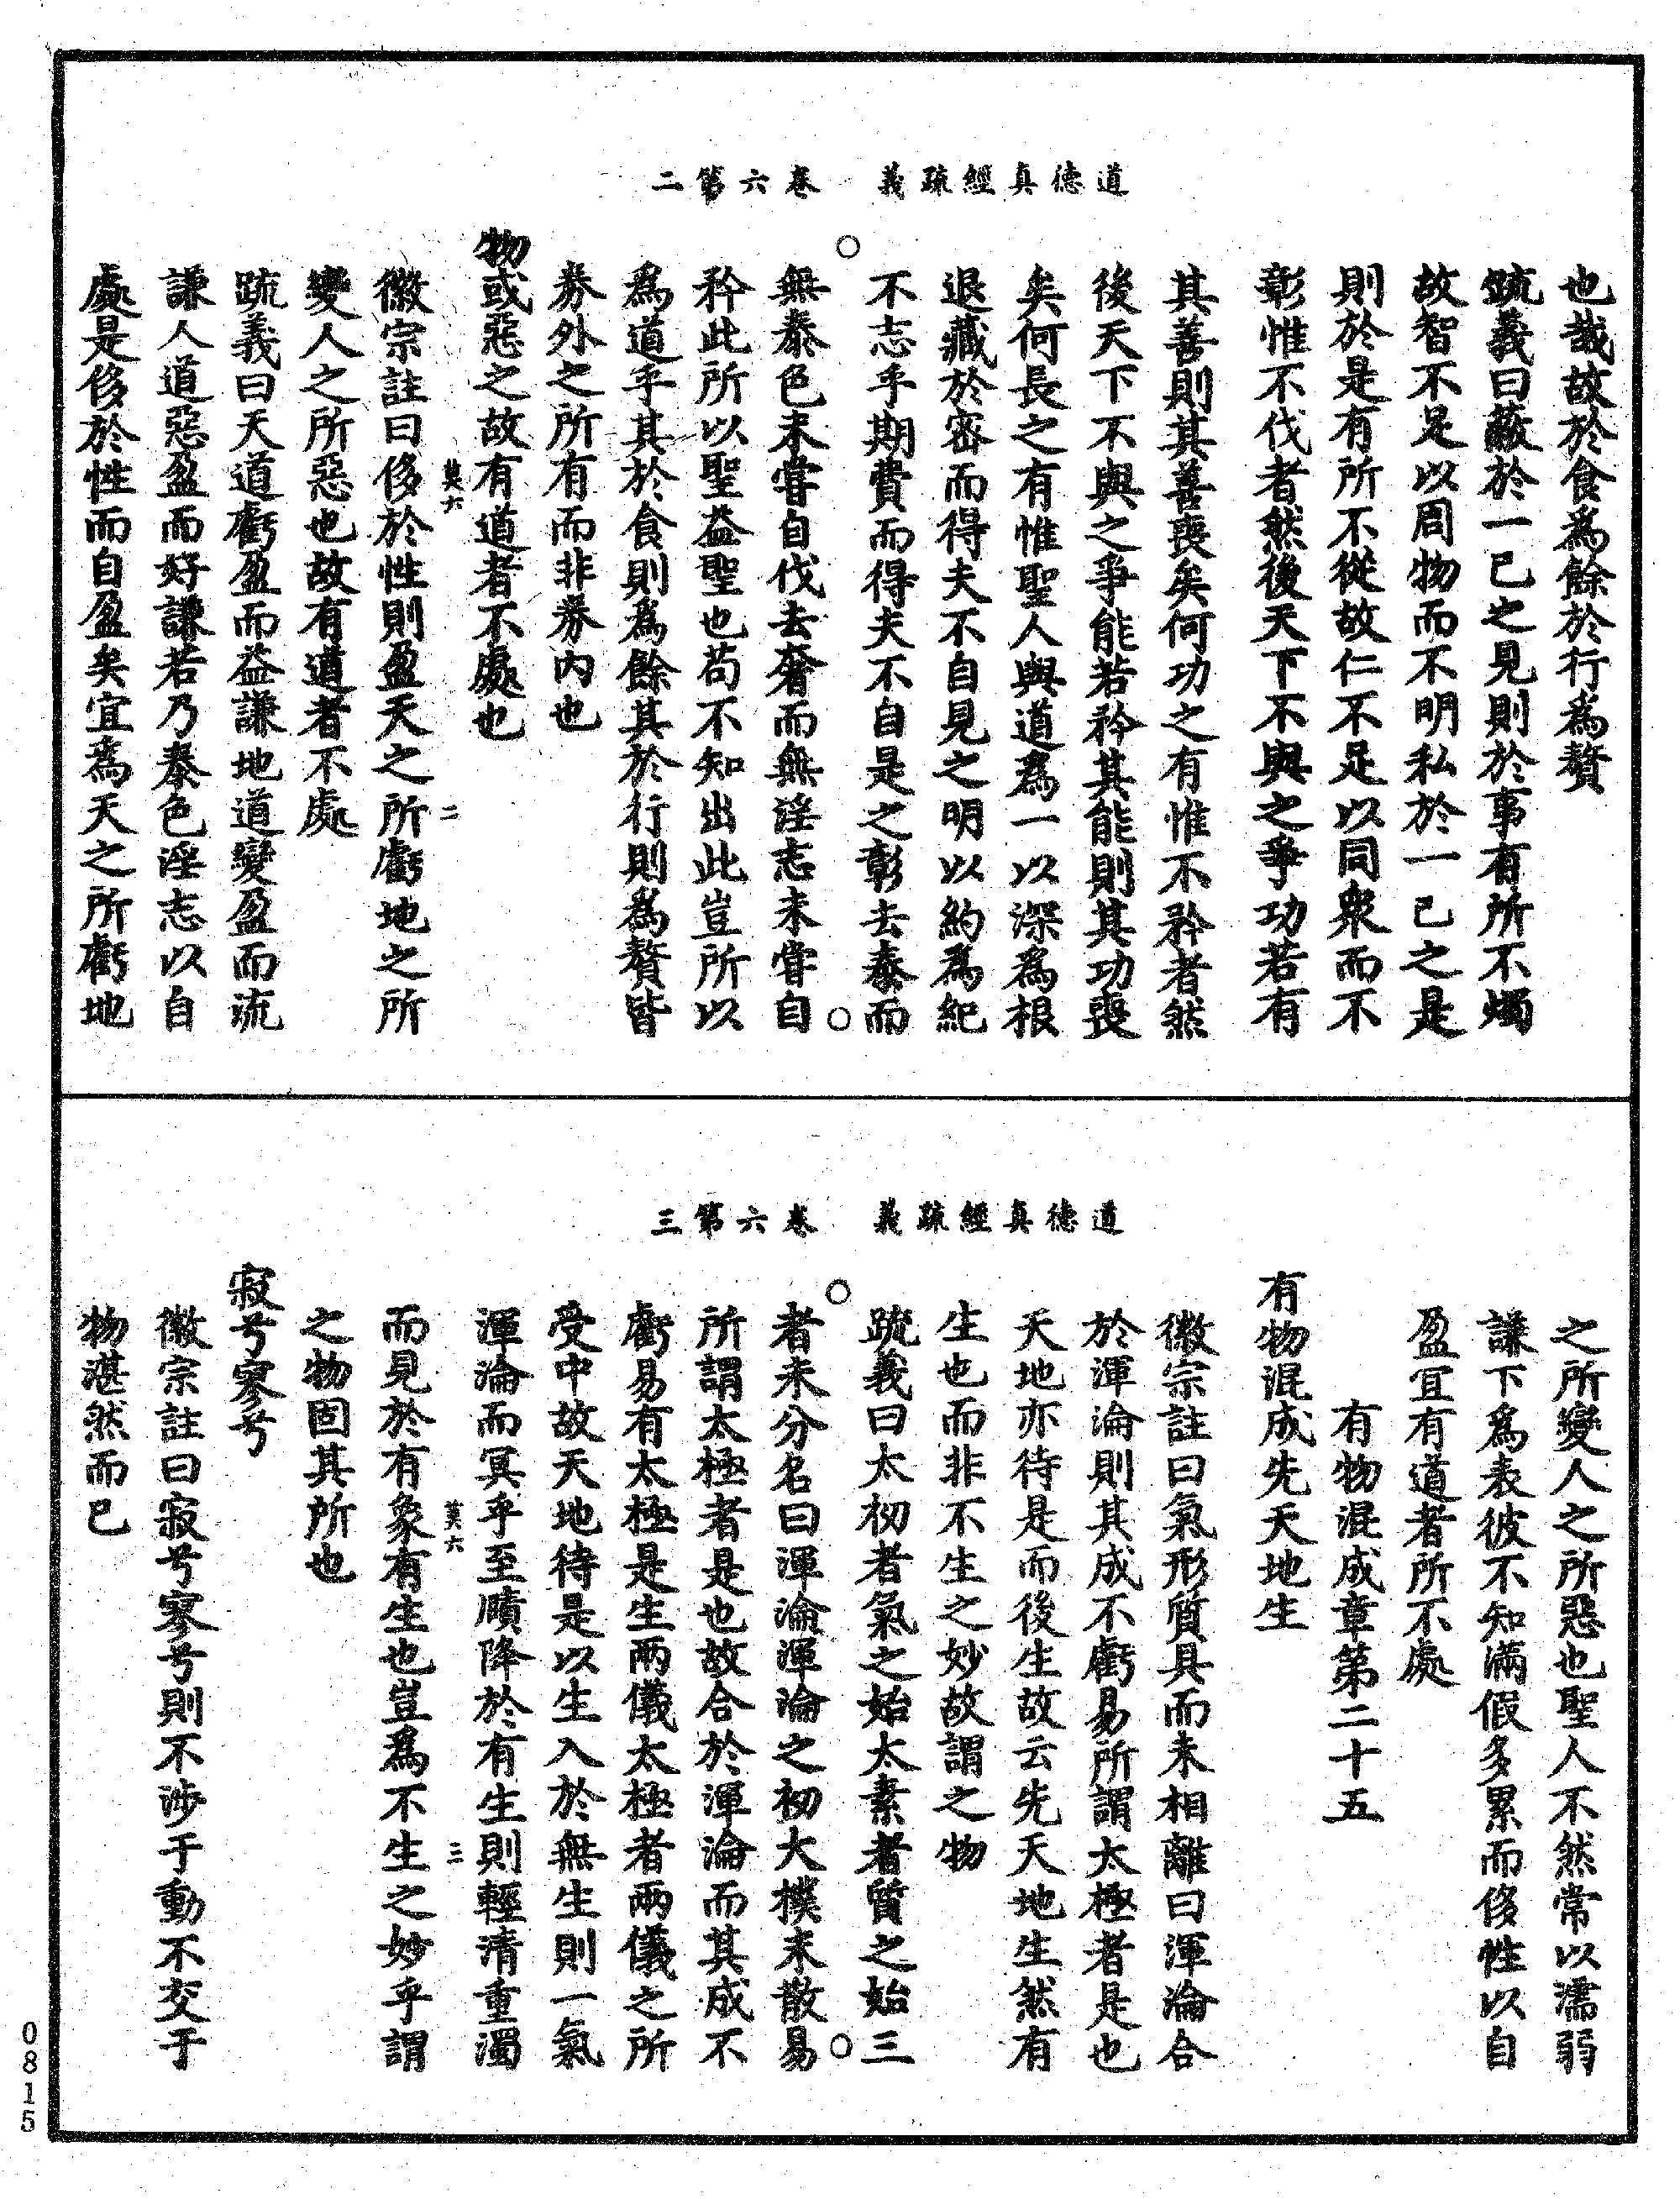 道德真經疏義　卷六第二
也哉故於食為餘於行為贅
疏義曰蔽於一己之見則於事有所不燭
故智不足以周物而不明私於一己之是
則於是有所不從故仁不足以同眾而不
彰惟不伐者然後天下不與之爭功若有
其善則其善喪矣何功之有惟不矜者然
後天下不與之爭能若矜其能則其功喪
矣何長之有惟聖人與道為一以深為根
退藏於密而得夫不自見之明以約為紀
不志乎期費而得夫不自是之彰去泰而
無泰色未嘗自伐去奢而無淫志未嘗自
矜此所以聖益聖也苟不知出此豈所以
為道乎其於食則為餘其於行則為贅皆
券外之所有而非券內也
物或惡之故有道者不處也
徽宗註曰侈於性則盈天之所虧地之所
變人之所惡也故有道者不處
疏義曰天道虧盈而益謙地道變盈而流
謙人道惡盈而好謙若乃泰色淫志以自
處是侈於性而自盈矣宜為天之所虧地
莫六
二
道德真經疏義　卷六第三
之所變人之所惡也聖人不然常以濡弱
謙下為表彼不知滿假多累而侈性以自
盈宜有道者所不處
有物混成章第二十五
有物混成先天地生
徽宗註曰氣形質具而未相離曰渾淪合
於渾淪則其成不虧易所謂太極者是也
天地亦待是而後生故云先天地生然有
生也而非不生之妙故謂之物
疏義曰太初者氣之始太素者質之始三
者未分名曰渾淪渾淪之初大樸未散易
所謂太極者是也故合於渾淪而其成不
虧易有太極是生兩儀太極者兩儀之所
受中故天地待是以生入於無生則一氣
渾淪而冥乎至賾降於有生則輕清重濁
而見於有象有生也豈為不生之妙乎謂
之物固其所也
寂兮寥兮
徽宗註曰寂兮寥兮則不涉于動不交于
物湛然而已
莫六
三
0815